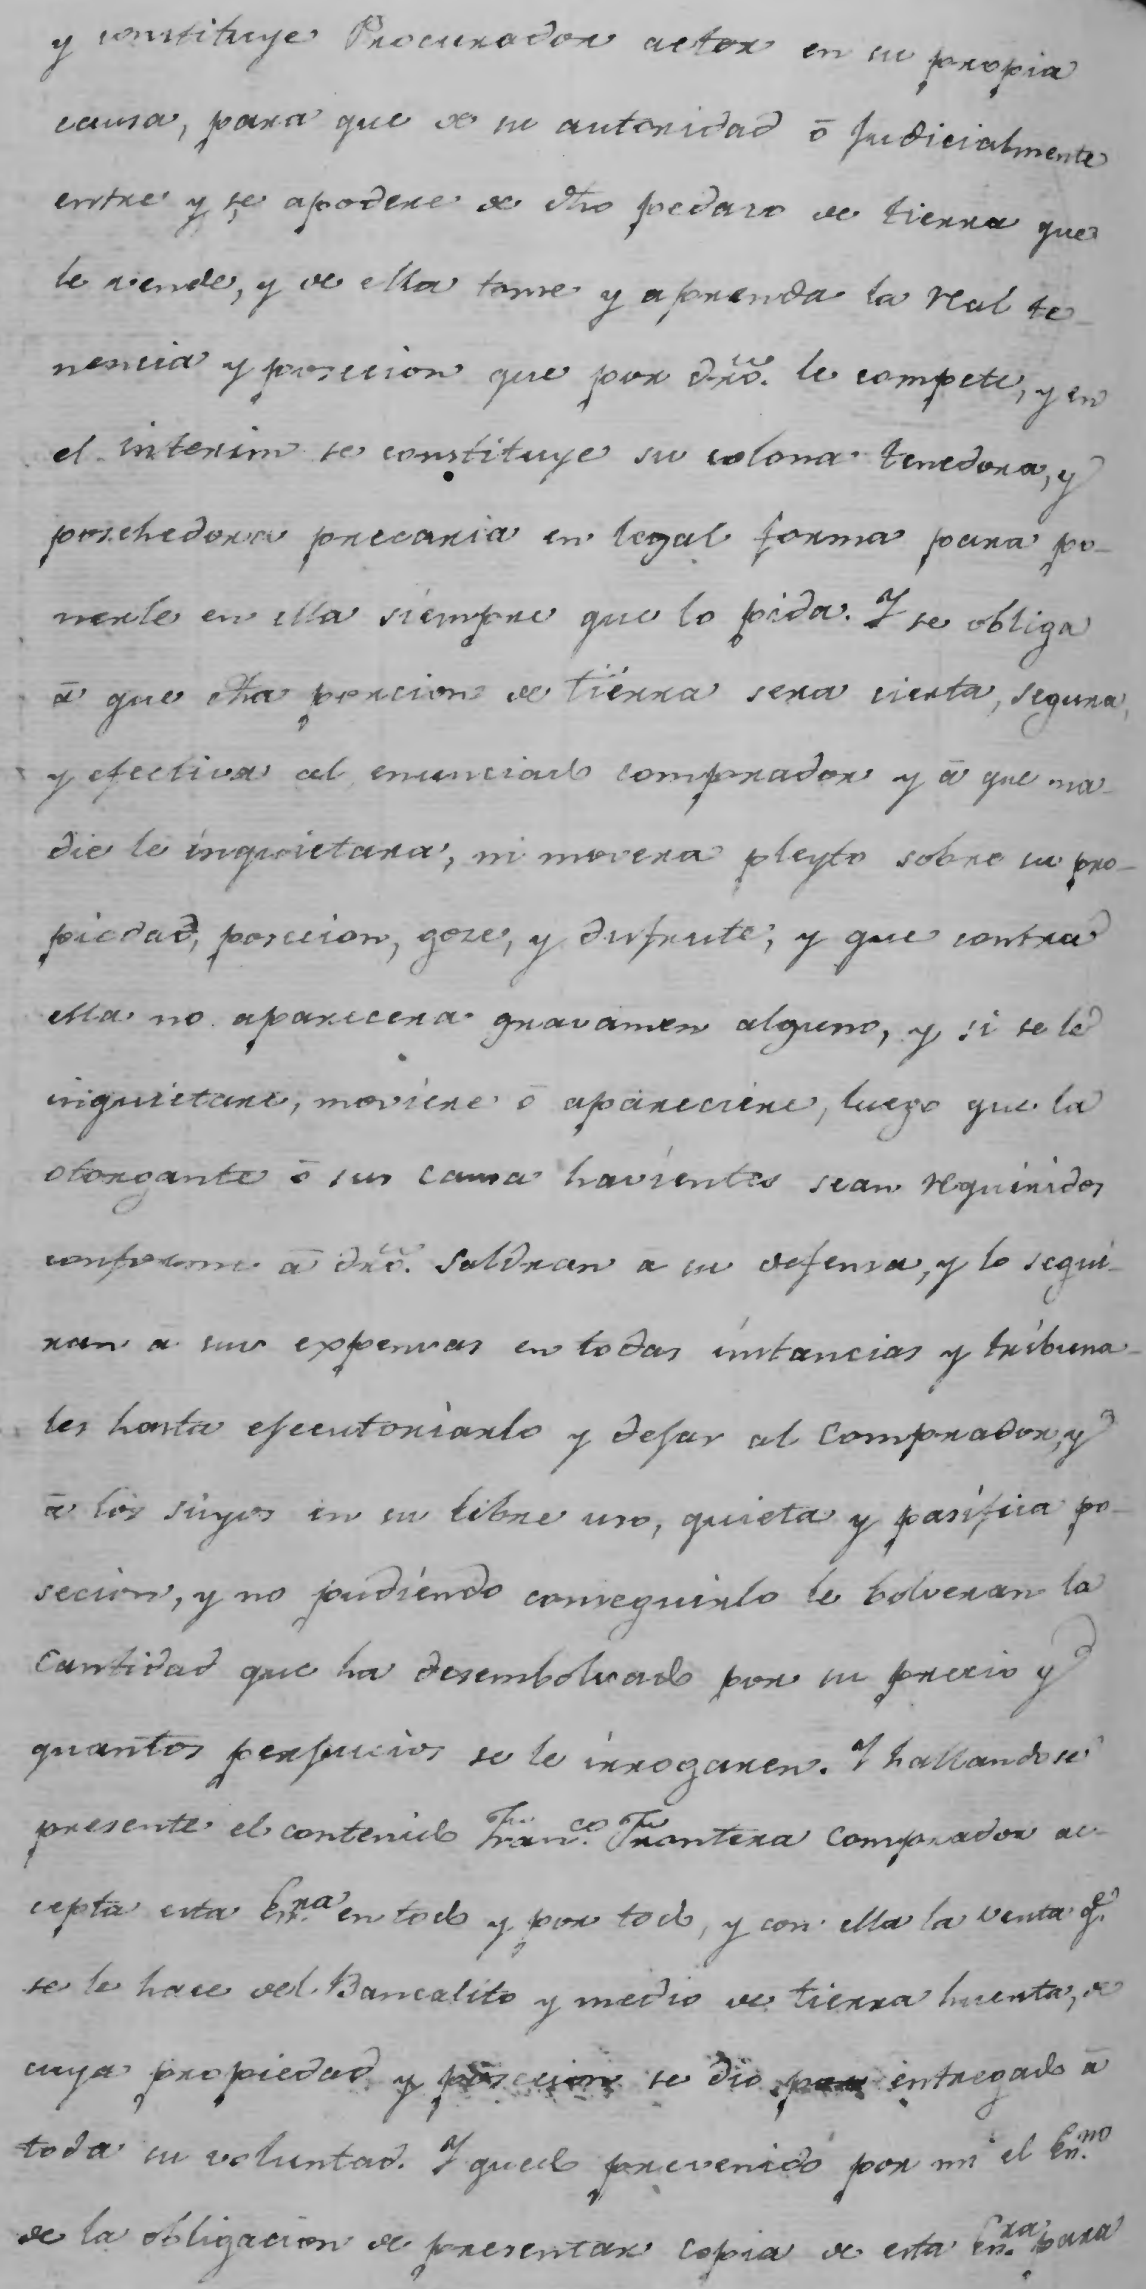 y constituye Procurador actor en su propia
causa, para que de su autoridad ó Judicialmente
entre y se apodere de dho pedazo de tierra que
le vende, y de ella tome y aprenda la real te-
nencia y posecion que por dro. le compete, y en
el interin se constituye su colona tenedora, y
poseehedora precaria en legal forma para po-
nerle en ella siempre que lo pida. Y se obliga
á que dha porcion de tierra sera cierta, segura,
y efectiva al enunciado comprador y á que na-
die le inquietara, ni movera pleyto sobre su pro-
piedad, posecion, goze, y disfrute, y que contra
ella no aparecera gravamen alguno, y si se le
inquietare, moviere ó apareciere, luego que la
otorgante ó sus causa havientes sean requiridos
conforme á dro. saldran a su defensa, y lo segui-
ran a sus expensas en todas instancias y tribuna-
les hasta ejecutoriarlo y dejar al comprador, y
á los suyos en su libre uso, quieta y pasifica po-
secion, y no pudiendo conseguirlo le bolveran la
cantidad que ha desembolsado por su precio y
quantos perjuicios se le irrogaren. Y hallandose
presente el contenido Franco. Frontera comprador ac-
cepta esta Esra. en todo y por todo, y con ella la venta q.e
se le hace del Bancalito y medio de tierra huerta, de
cuya propiedad y posecion se dio por entregado á
toda su voluntad. Y quedo prevenido por mi el Esno.
de la obligacion de presentar copia de esta Esra. para